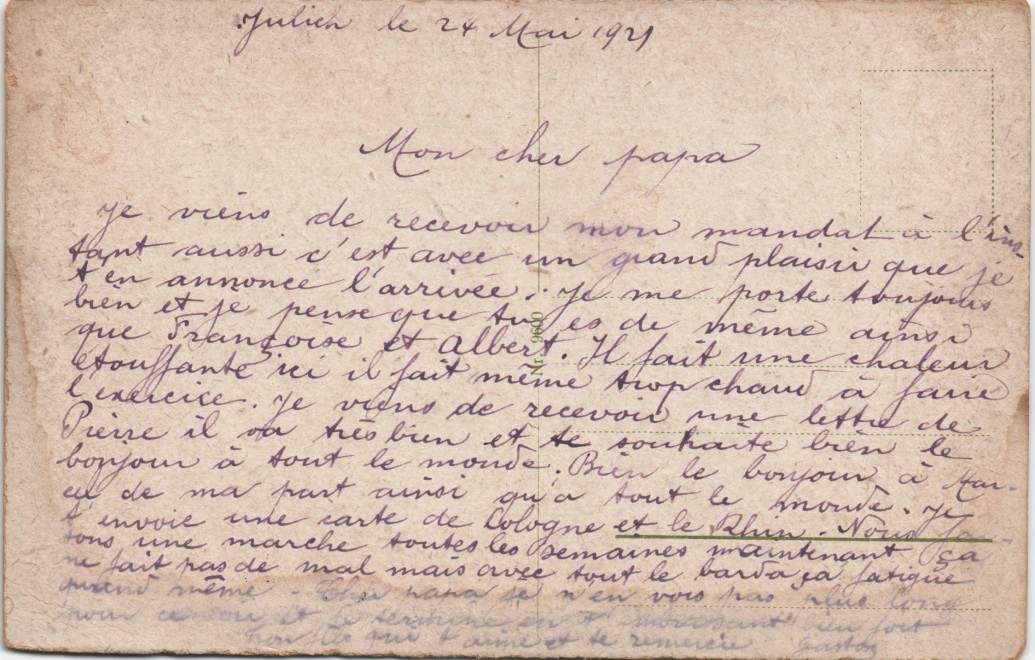 Julich le 24 Mai 1921
Mon cher papa
Je viens de recevoir mon mandat à l'ins-
tant aussi c'est avec un grand plaisir que je
t'en annonce l'arrivée. Je me porte toujours
bien et je pense que tu es de même ainsi
que Françoise et Albert. Il fait une chaleur
étouffante ici il fait même trop chaud à faire
l'exercice. Je viens de recevoir une lettre de
Pierre il va très bien et te souhaite bien le
bonjour à tout le monde. Bien le bonjour à
de ma part ainsi qu'a tout le monde. Je
t'envoie une carte de Cologne et le Rhin. Nous fai-
sons une marche toutes les semaines maintenant ça
ne fait pas de mal mais avec tout le barda ça fatigue
quand même. Cher papa je n'en vois pas plus long
pour ce soir et je termine en t'embrassant bien fort
Ton fils qui t'aime et te remercie Gaston
Nr. 9600